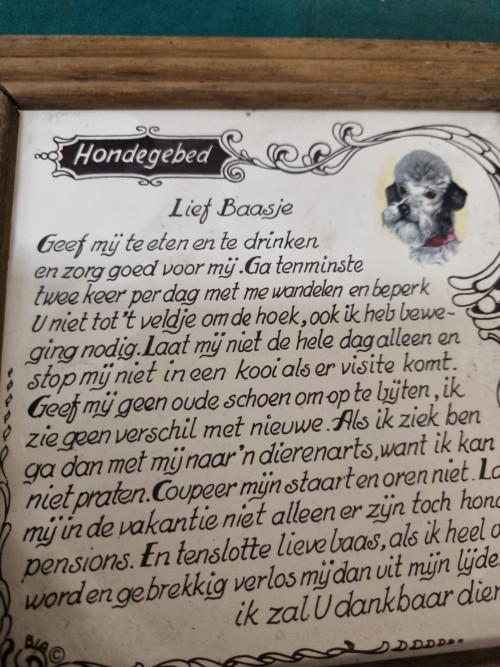 Hondegebed
Lief Baasje
Geef mij te eten en te drinken
en zorg goed voor mij. Ga tenminste
twee keer per dag met me wandelen en beperk
U niet tot 't veldje om de hoek, ook ik heb bewe-
ging nodig. Laat mij niet de hele dag alleen en
stop mij niet in een kooi als er visite komt.
Geef mij geen oude schoen om op te bijten, ik
zie geen verschil met nieuwe. Als ik ziek ben
ga dan met mij naar 'n dierenarts, want ik kan
niet praten. Coupeer mijn staart en oren niet.
mij in de vakantie niet alleen er zijn toch
pensions. En tenslotte lieve baas, als ik heel
word en gebrekkig verlos mij dan uit mijn
ik zal U dankbaar
©